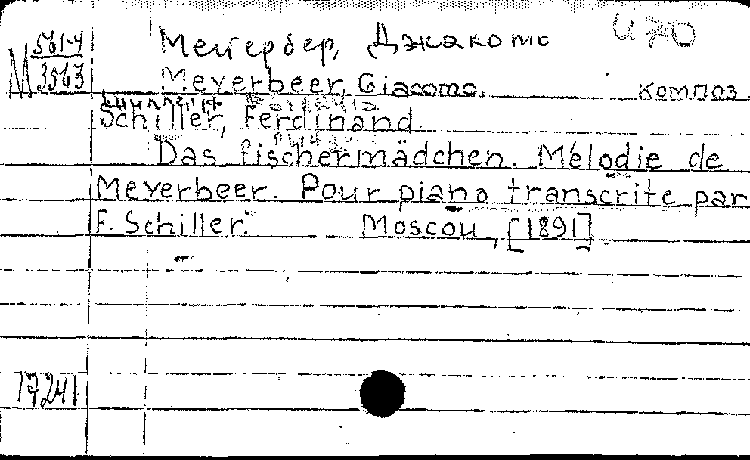 Мейербер, Джакомо
М 561-4
3563
Meyerbeer, Giacomo.
композ
Schiller, Ferdinand.
Das fischermädchen. Mélodie de
Meyerbeer. Pour piano transcrite par
F. Schiller. Moscou, [1891]
17241